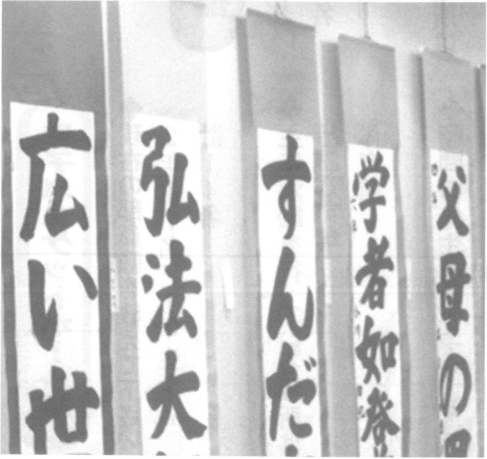 父母の
学者如登
すんだ
弘法大
広い世